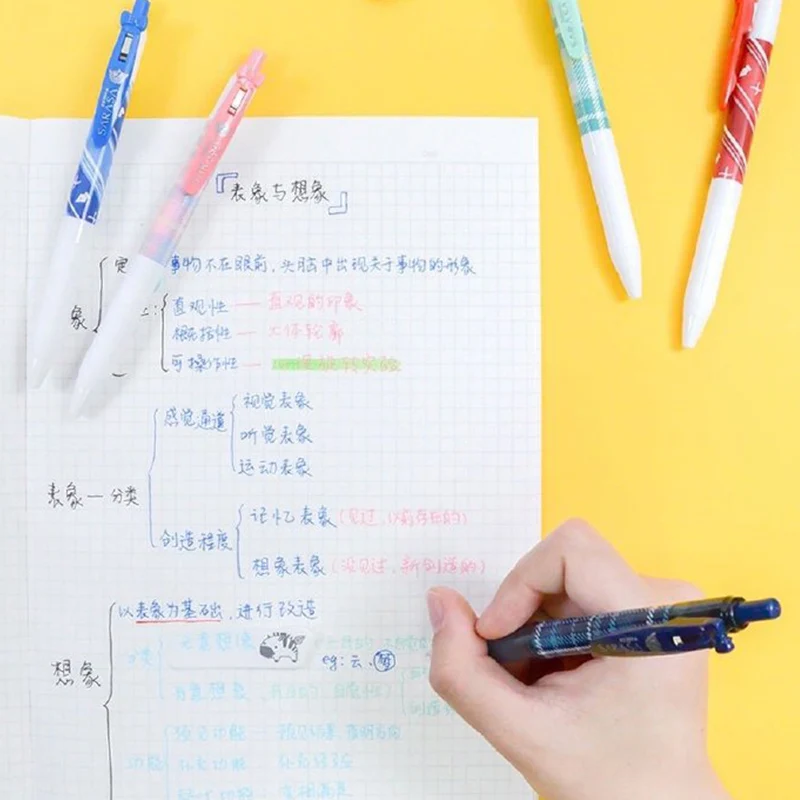 SARASA
『表象与想象』
事物不在眼前，头脑中出现关于事物的形象
象
直观性 — 直观的印象
概括性 — 大体轮廓
可操作性 —
感觉通道
视觉表象
听觉表象
运动表象
表象 — 分类
创造程度
记忆表象(见过，以前存在的)
想象表象(没见过，新创造的)
以表象为基础，进行改造
想象
无意想象
eg:云、
有意想象
功能
预见功能
补充功能